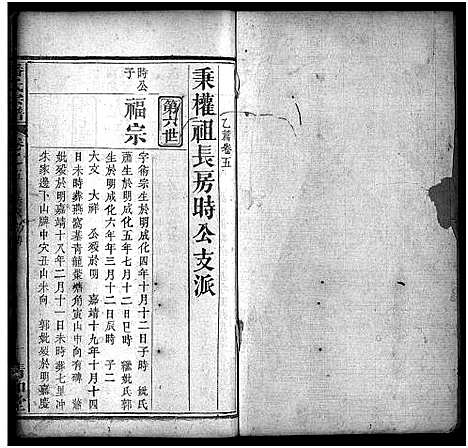 乙篇卷五
秉權祖長房時公支派
第六世
時公子
福宗
字衡宗生於明成化四年十月十二日子時 妣氏
蕭生於明成化五年七月十二日巳時 繼妣氏郭
生於明成化六年三月十二日辰時 子二
大文 大祥 公歿於明 嘉靖十九年十月十四
日未時葬燕窩基青龍嘴角寅山申向有碑
妣歿於明嘉靖十八年二月十一日未時葬七里冲
朱家邊下山牌中穴丑山未向 郭妣歿於明嘉慶